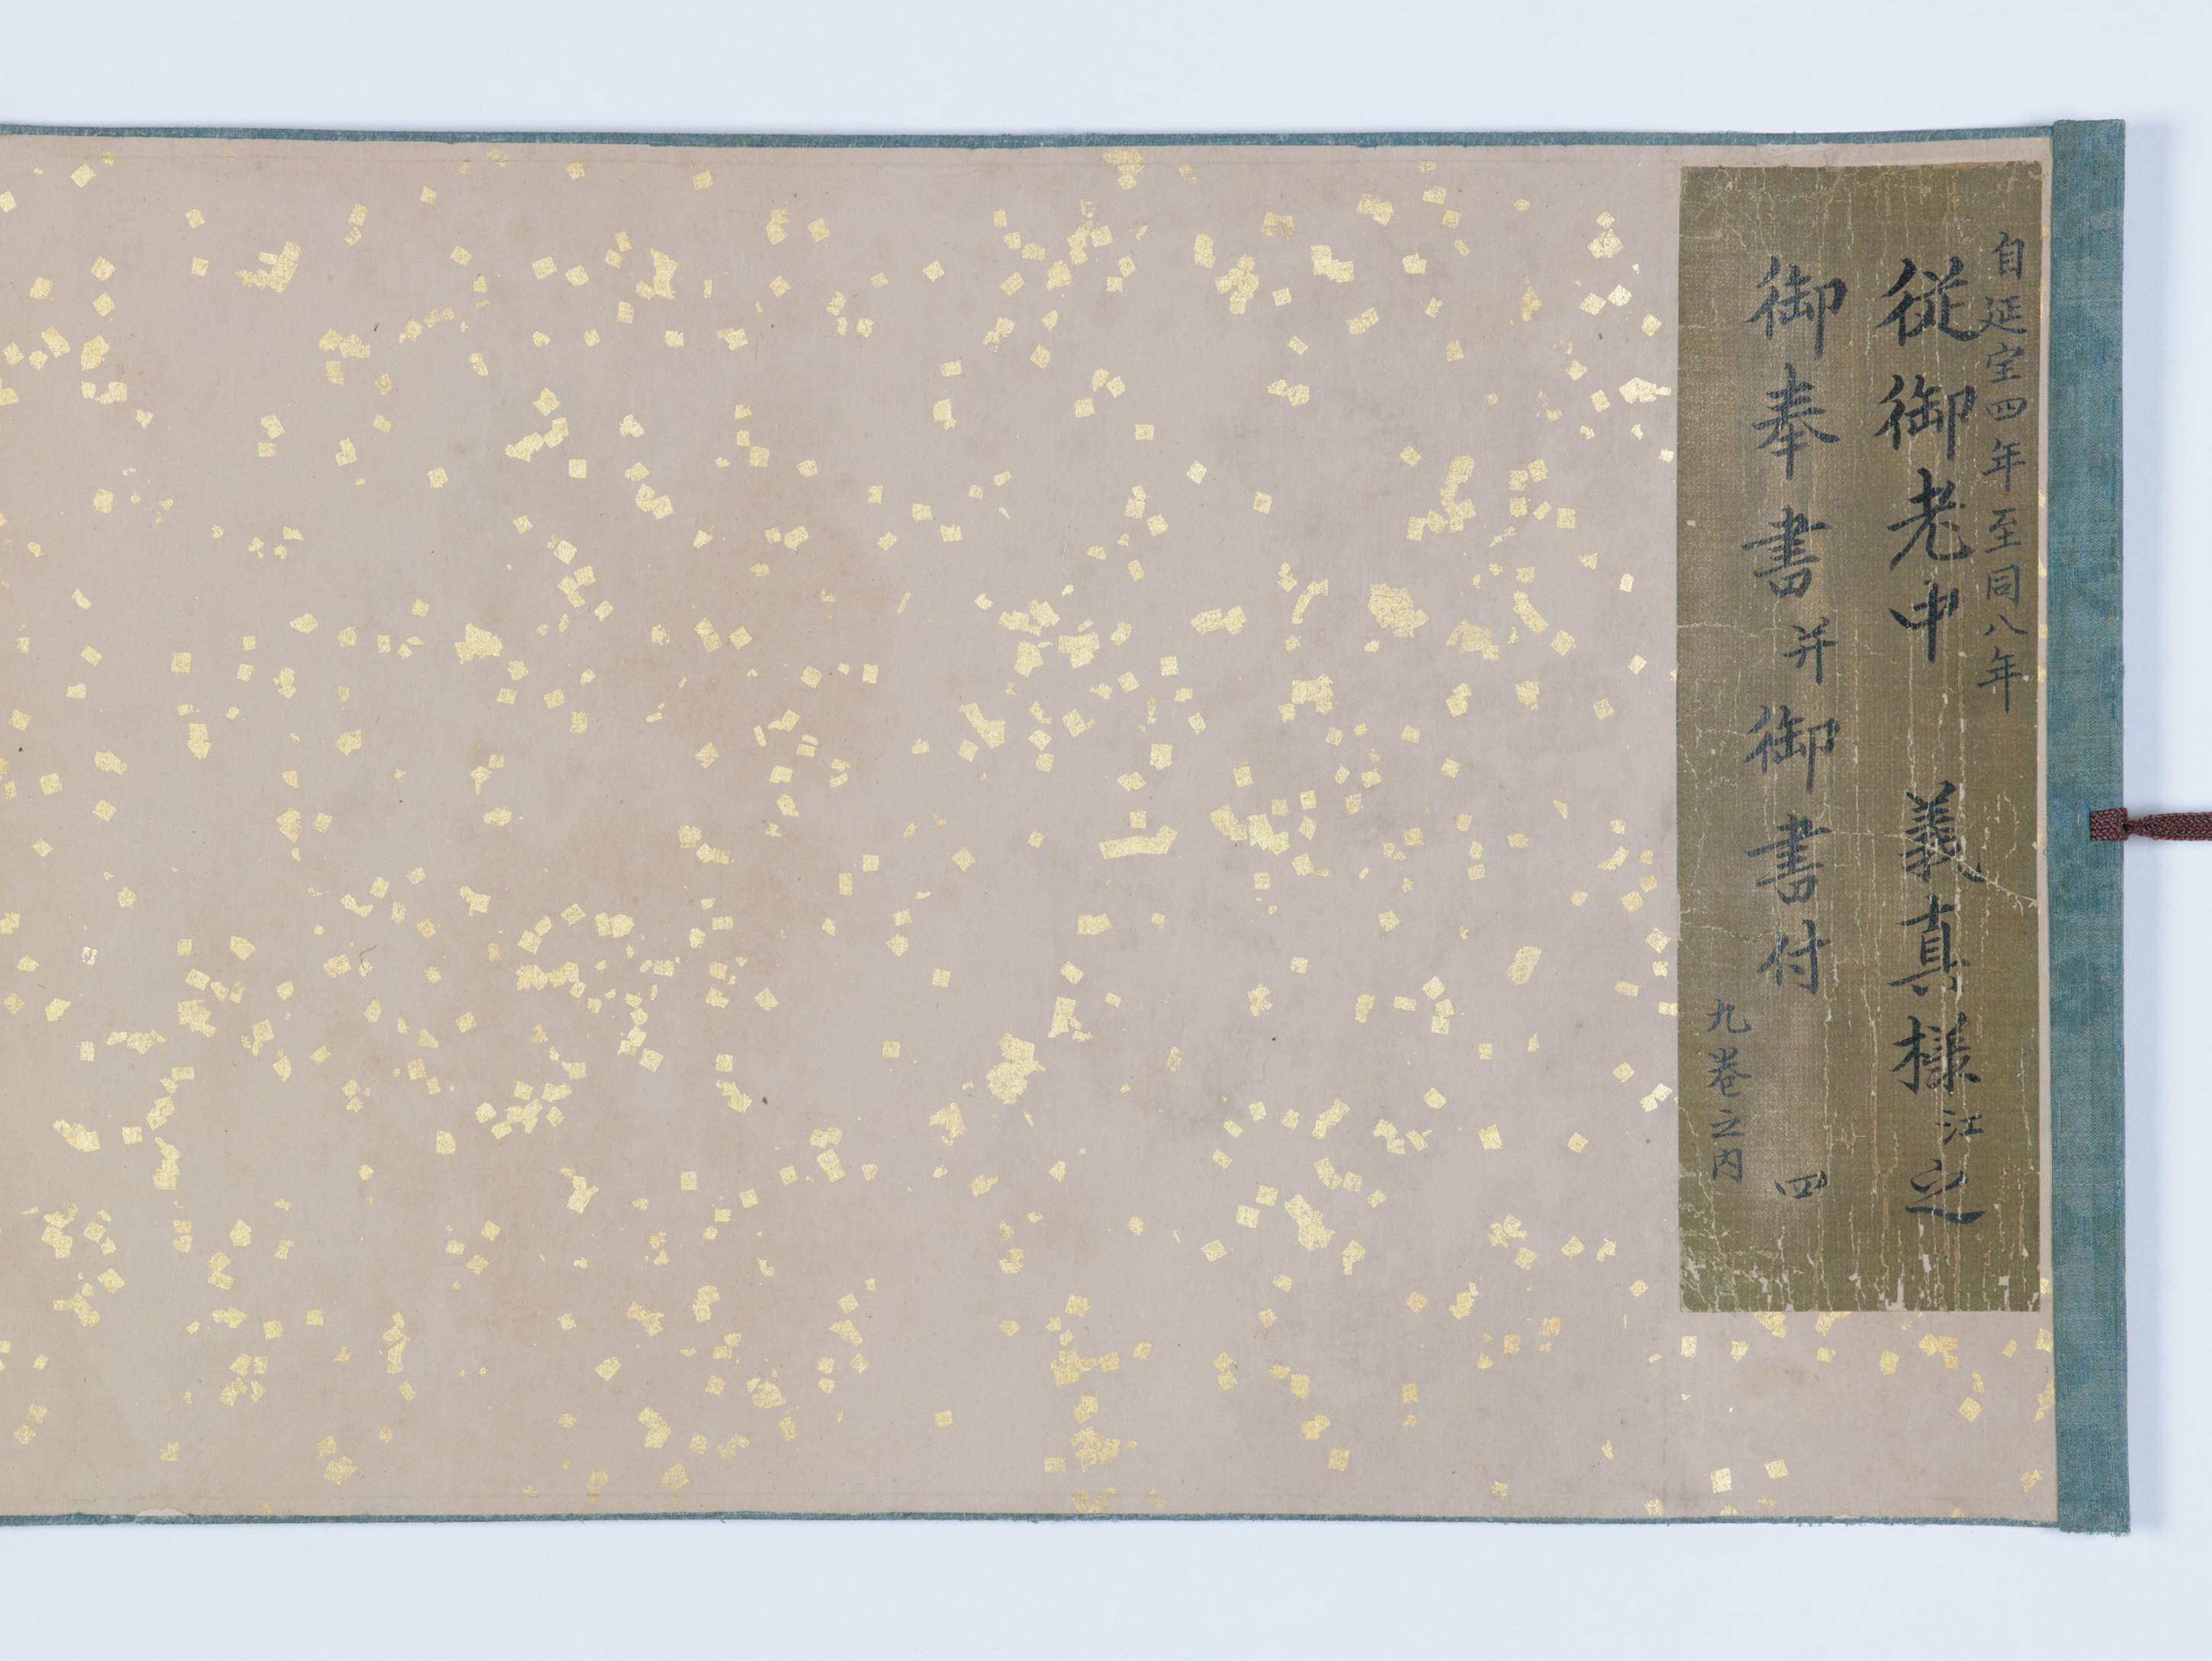 自延宝四年至同八年
従御老中 義真様江之
御奉書并御書付 四
九巻之内